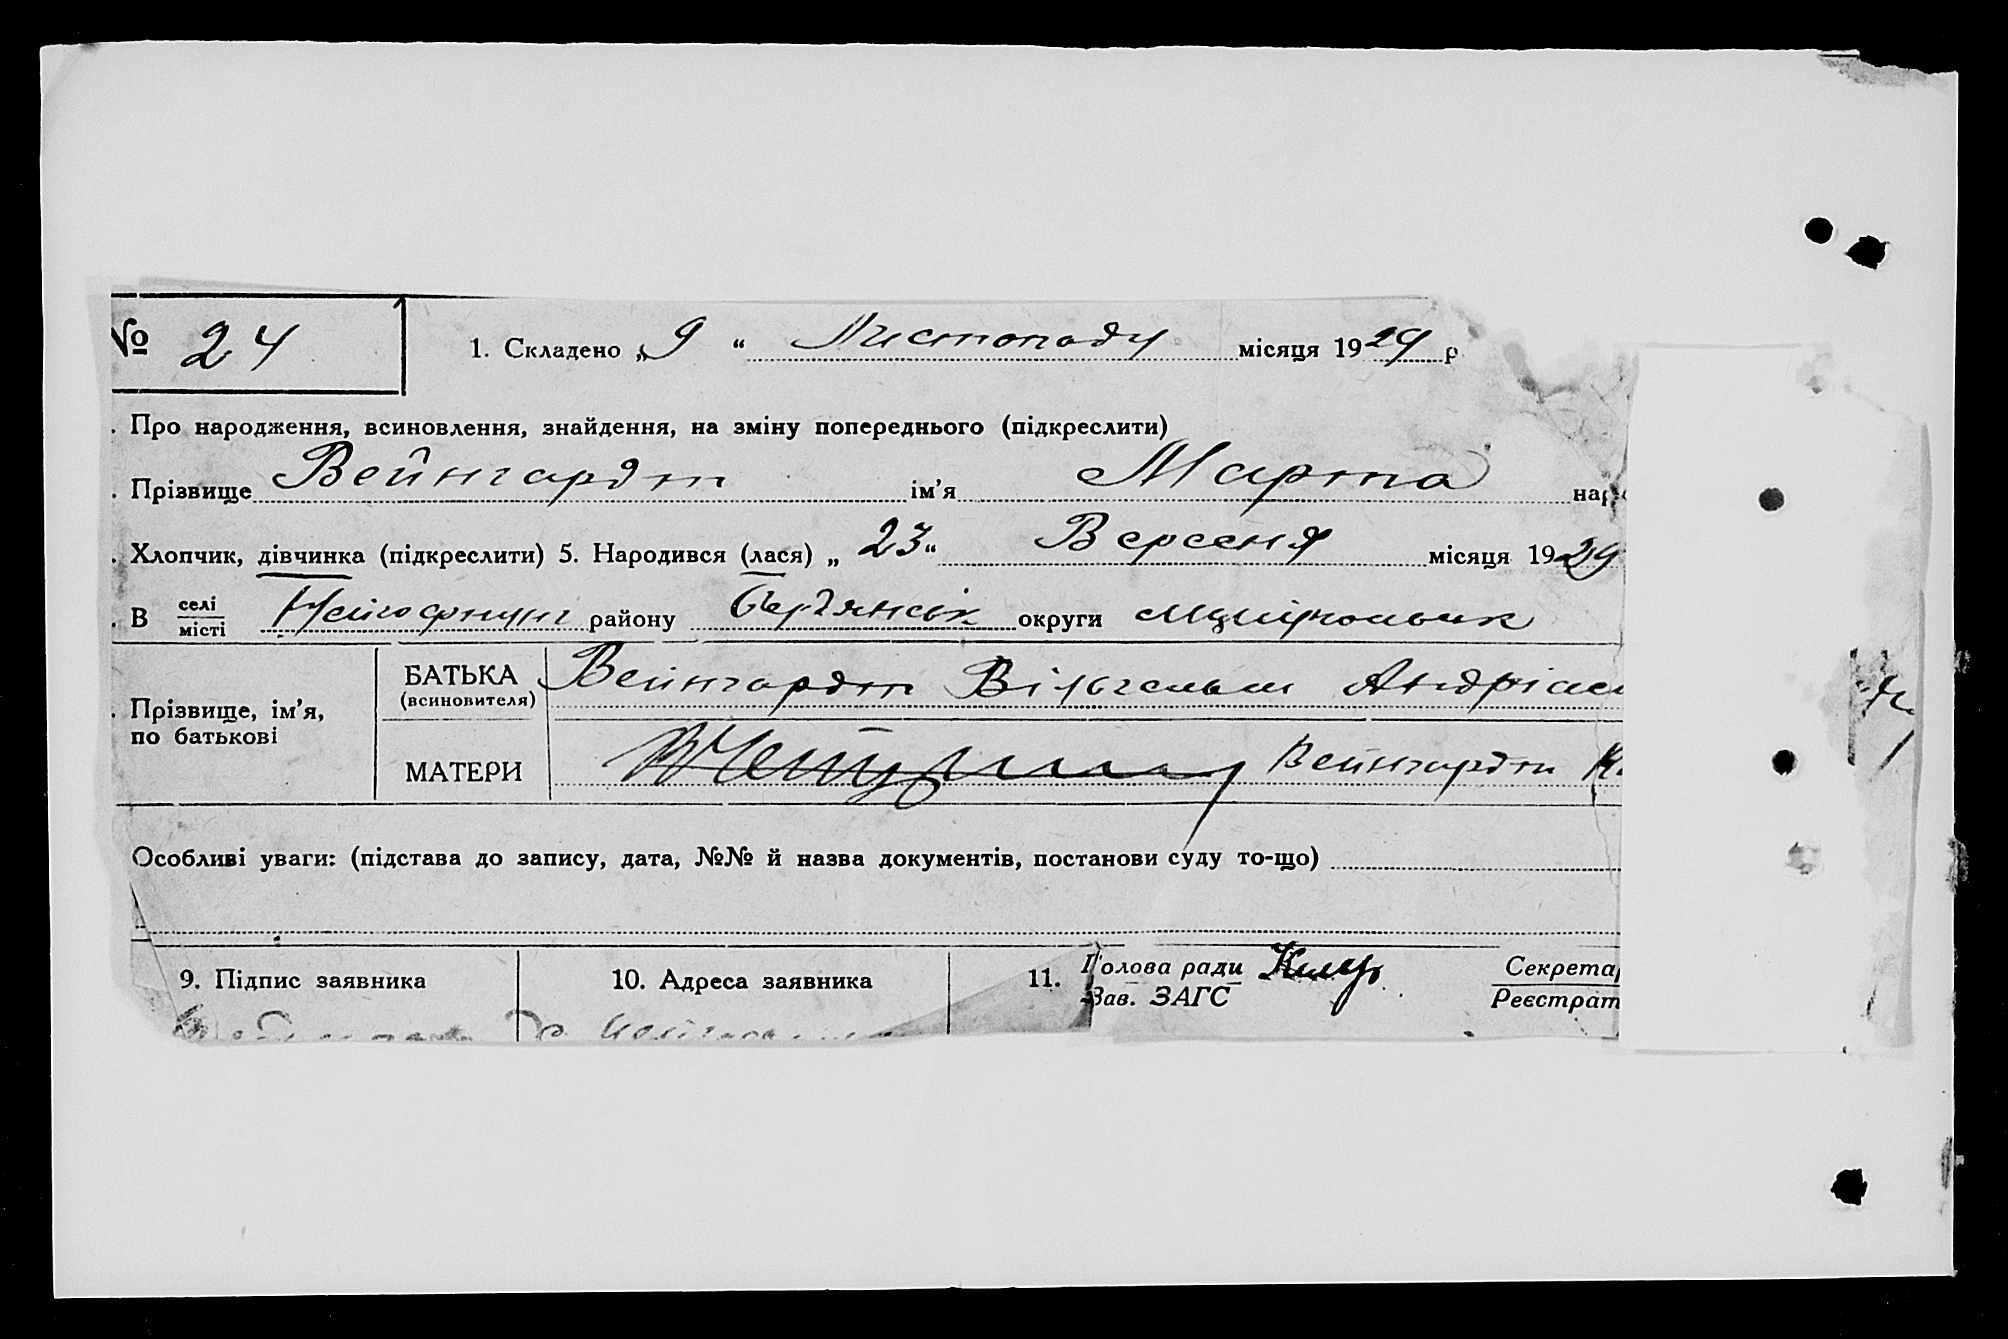 № 24
1. Складено „ 9 “ Листопаду місяця 1929 р
. Про народження, всиновлення, знайдення, на зміну попереднього (підкреслити)
. Прізвище Вейнгардт ім’я Марта нар
. Хлопчик, дівчинка (підкреслити) 5. Народився (лася) „ 23 “ Вересня місяця 1929
. В селі місті району округи
. Прізвище, ім’я, по батькові
БАТЬКА (всиновителя) Вейнгардт Вільгельм
МАТЕРИ Вейнгардт
Особливі уваги: (підстава до запису, дата, №№ й назва документів, постанови суду то-що)
9. Підпис заявника 10. Адреса заявника 11. Голова ради Секрета
Зав. ЗАГС Реєстрат